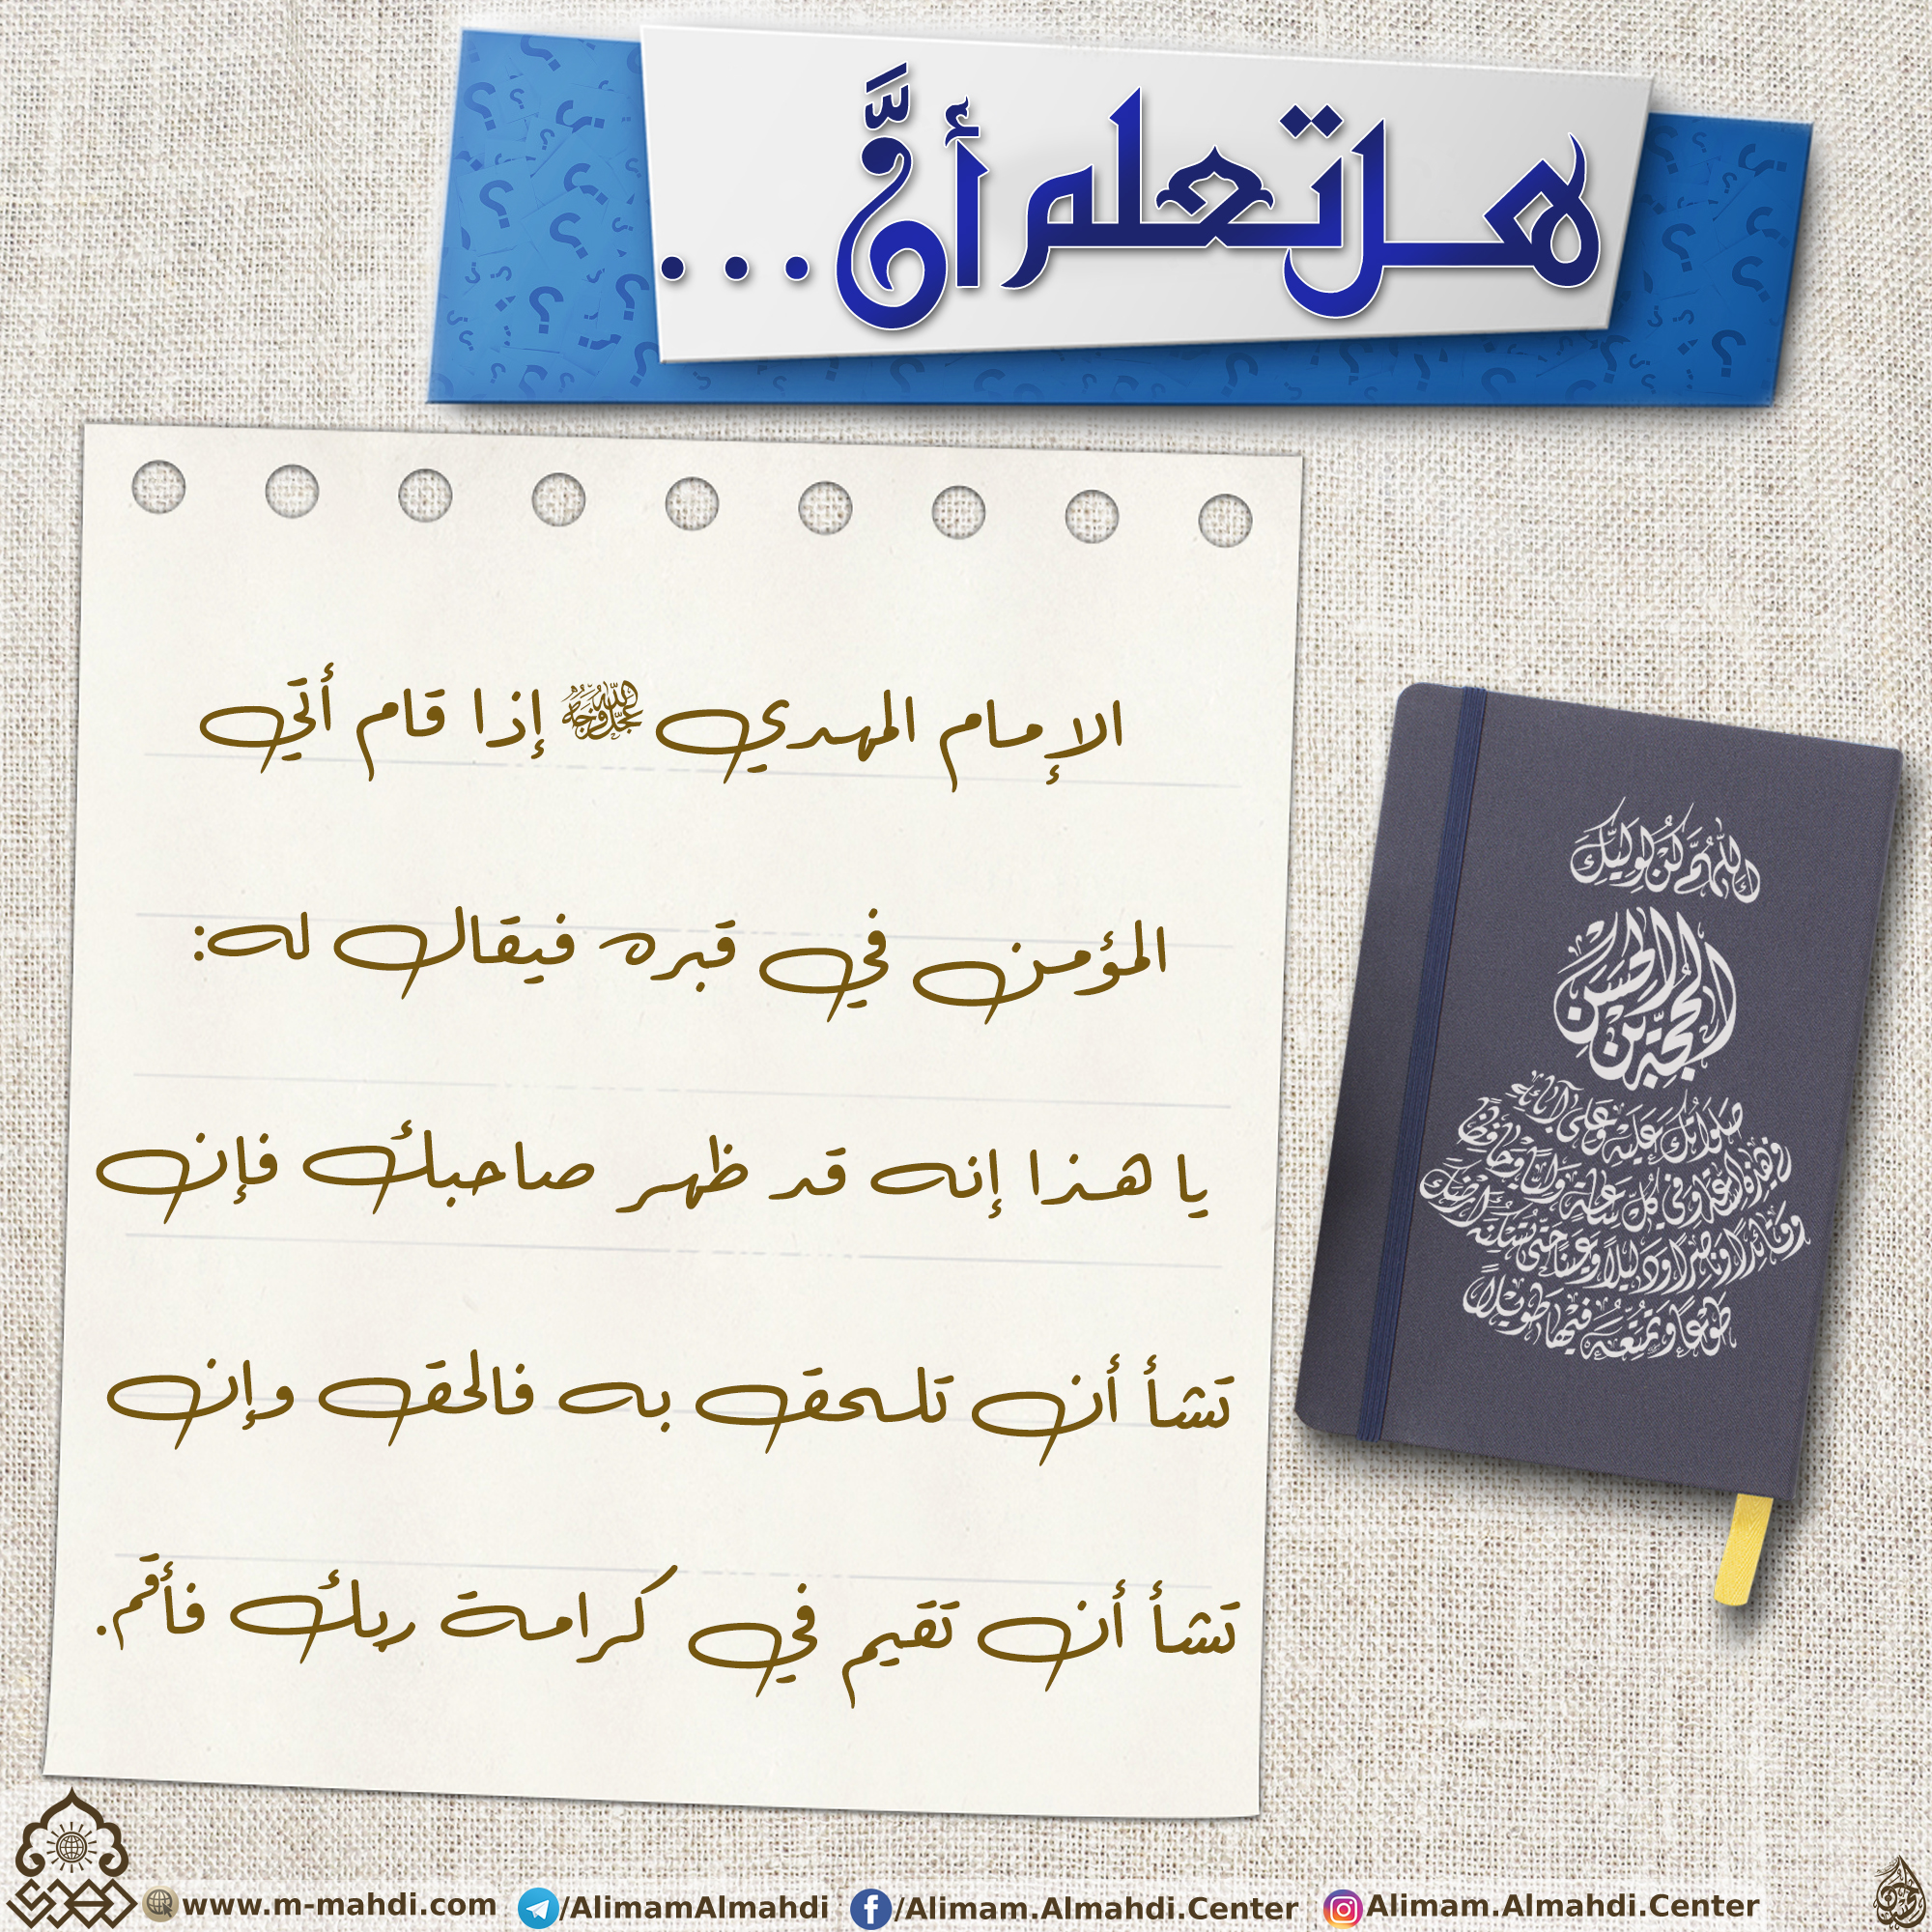 هل تعلم أنَّ...
الإمام المهدي عجل الله فرجه إذا قام أتي
المؤمن في قبره فيقال له:
يا هذا إنه قد ظهر صاحبك فإن
تشأ أن تلحق به فالحق وإن
تشأ أن تقيم في كرامة ربك فأقم.
اللهم كن لوليك
الحجة بن الحسن
صلواتك عليه وعلى آبائه
في هذه الساعة وفي كل ساعة وليا وحافظا
وقائدا وناصرا ودليلا وعينا حتى تسكنه أرضك
طوعا وتمتعه فيها طويلا
www.m-mahdi.com /AlimamAlmahdi /Alimam.Almahdi.Center Alimam.Almahdi.Center